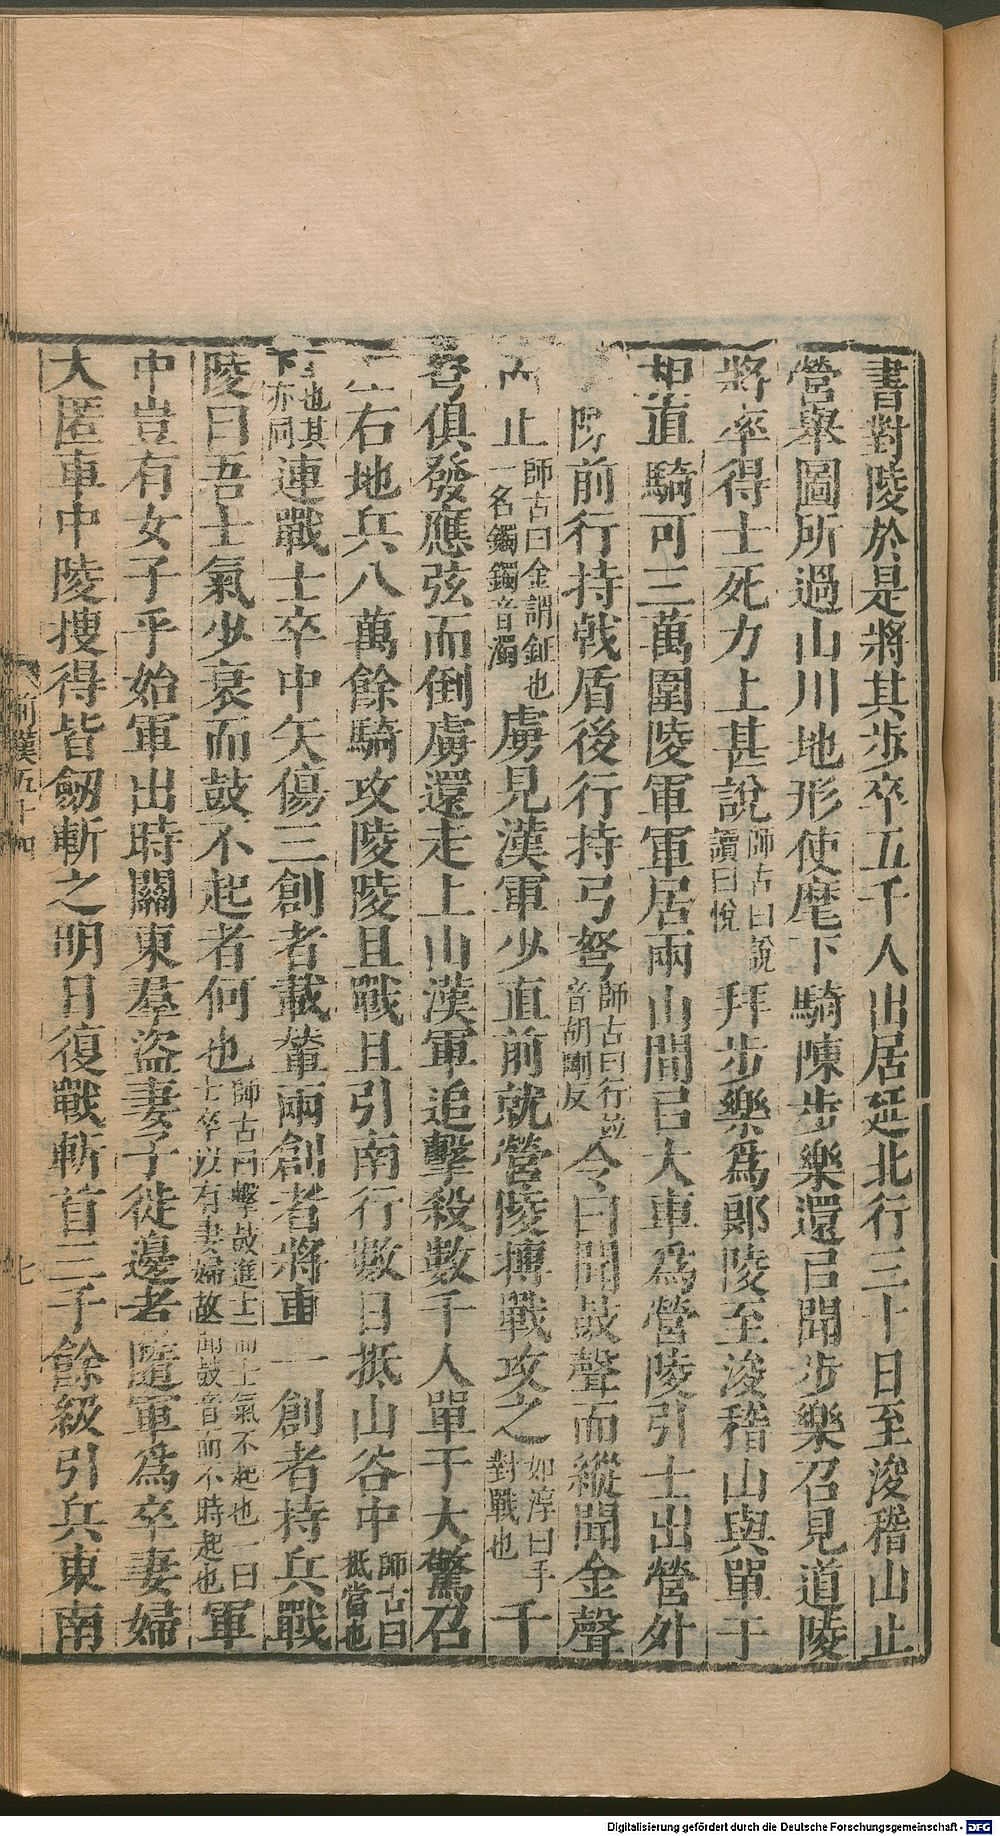 書對陵於是將其步卒五千人出居延北行三十日至浚稽山止
營舉圖所過山川地形使麾下騎陳步樂還㠯聞步樂召見道陵
將率得士死力上甚說師古曰說讀曰悅拜步樂爲郎陵至浚稽山與單于
相直騎可三萬圍陵軍軍居兩山間㠯大車爲營陵引士出營外
前行持戟盾後行持弓弩師古曰行並音胡剛反令曰聞鼓聲而縱聞金聲
而止師古曰金謂鉦也一名鐲鐲音濁虜見漢軍少直前就營陵搏戰攻之如淳曰手對戰也千
弩俱發應弦而倒虜還走上山漢軍追擊殺數千人單于大驚召
右地兵八萬餘騎攻陵陵且戰且引南行數日抵山谷中師古曰抵當也
也其下亦同連戰士卒中矢傷三創者載輦兩創者將車一創者持兵戰
陵曰吾士氣少衰而鼓不起者何也師古曰擊鼓進士而士氣不起也一曰士卒以有妻婦故聞鼓音而不時起也軍
中豈有女子乎始軍出時關東羣盜妻子徙邊者隨軍爲卒妻婦
大匿車中陵搜得皆劒斬之明日復戰斬首三千餘級引兵東南
前漢五十四
七
Digitalisierung gefördert durch die Deutsche Forschungsgemeinschaft - DFG